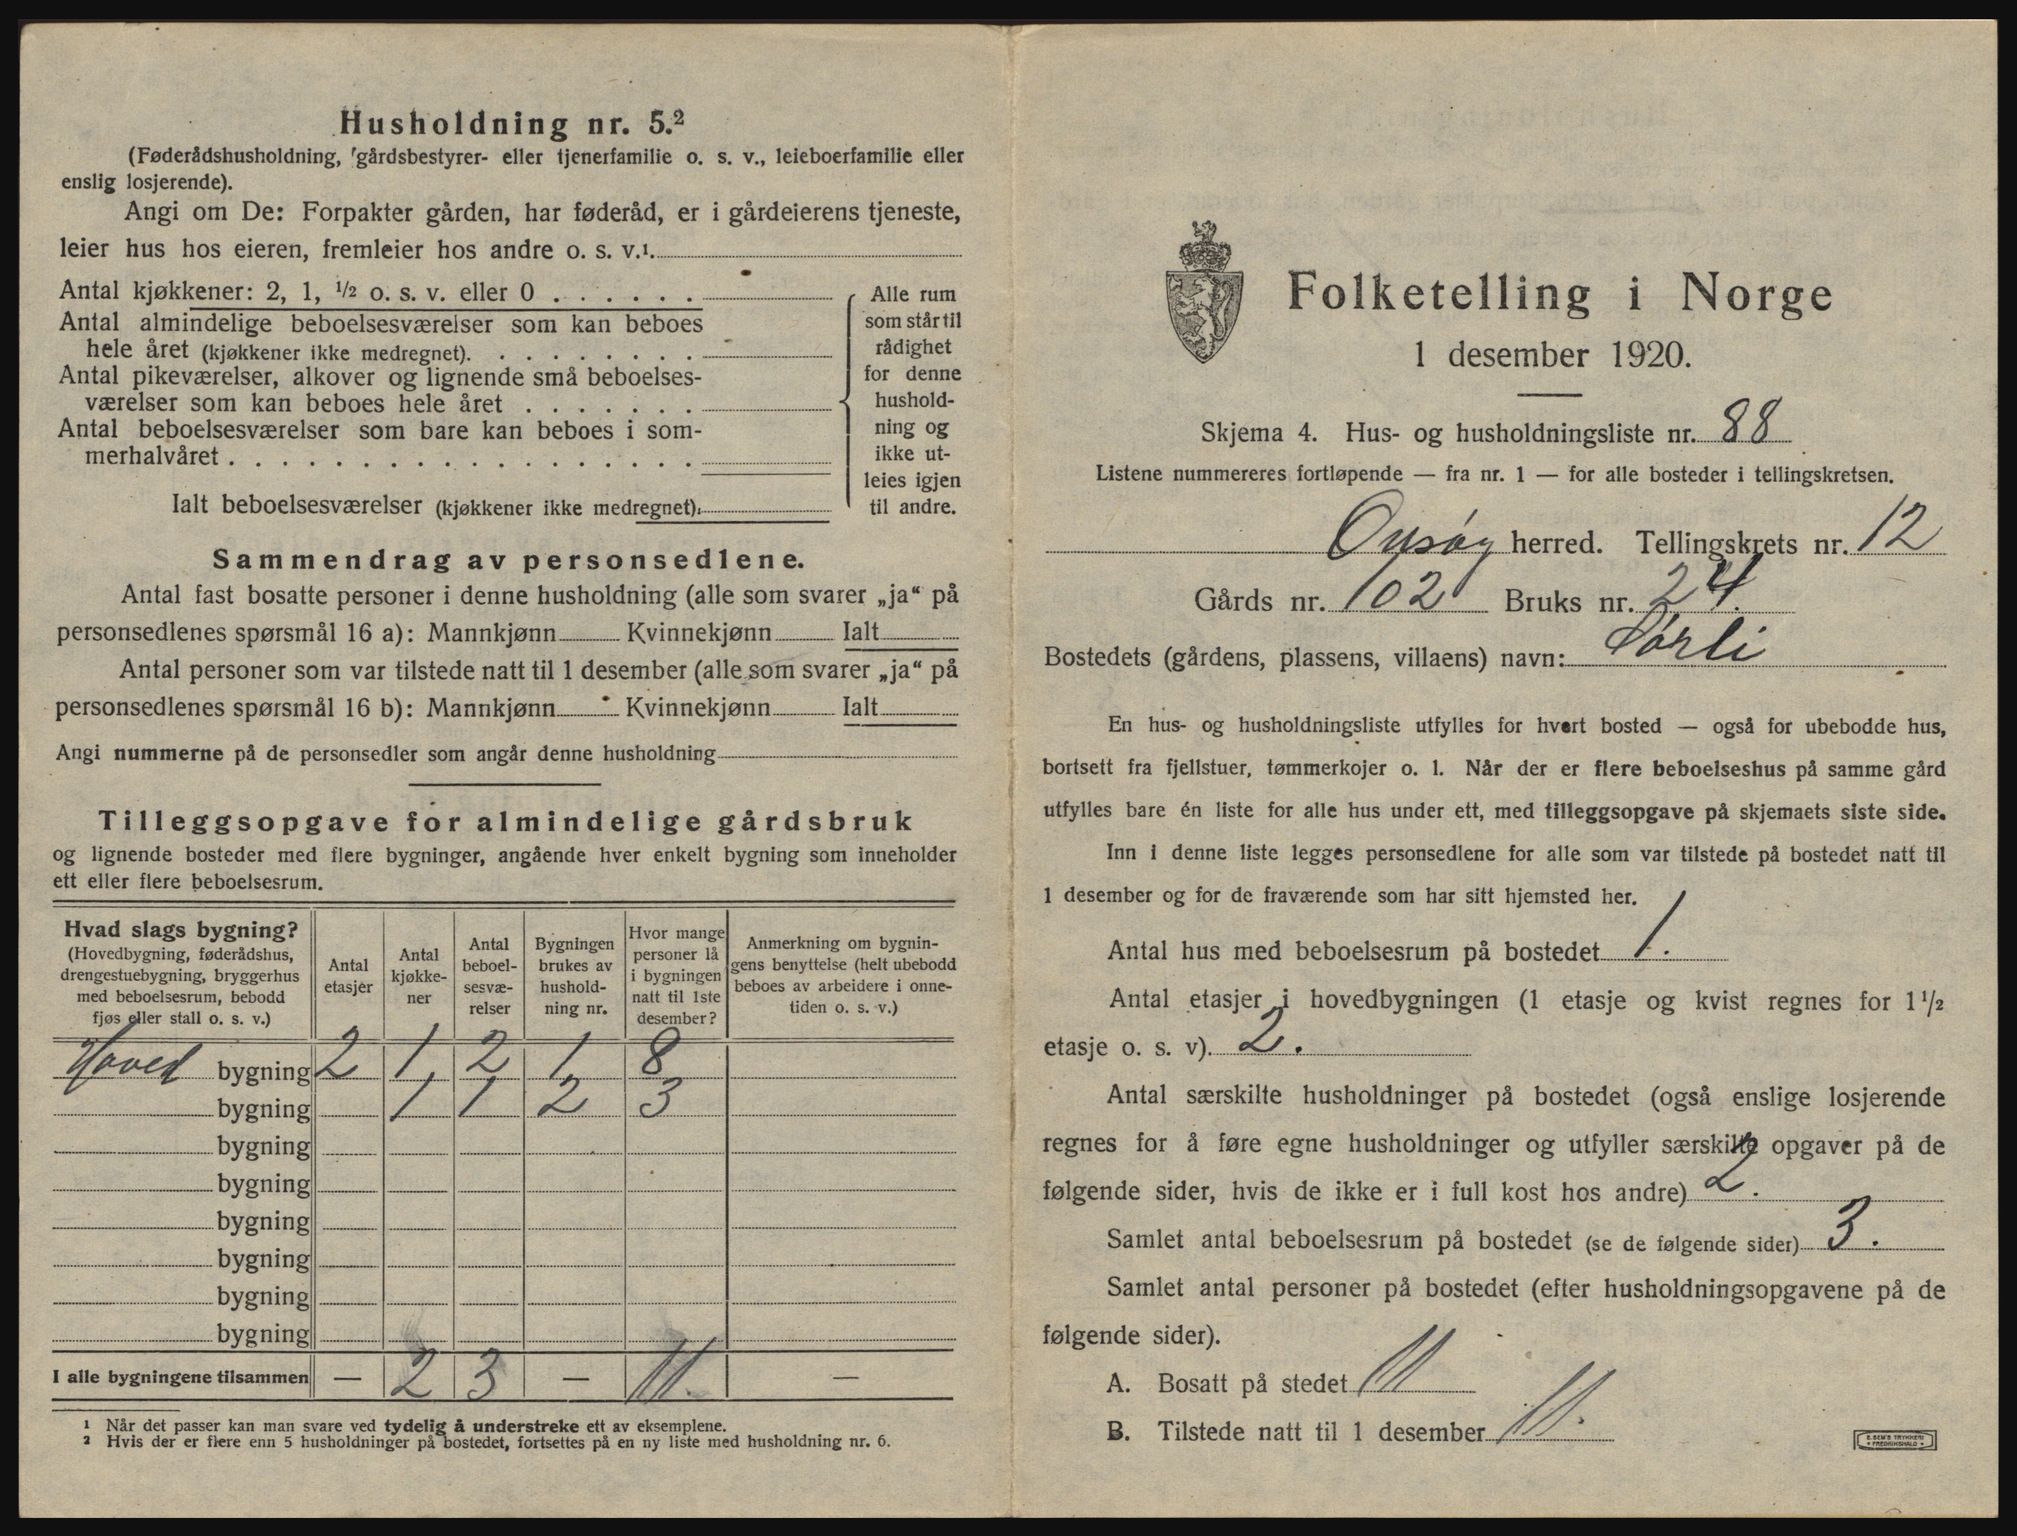 Husholdning nr. 5.²
(Føderådshusholdning, gårdsbestyrer- eller tjenerfamilie o. s. v., leieboerfamilie eller
enslig losjerende).
Angi om De: Forpakter gården, har føderåd, er i gårdeierens tjeneste,
leier hus hos eieren, fremleier hos andre o. s. v.¹
Antal kjøkkener: 2, 1, ½ o. s. v. eller 0 . . . . . .
Antal almindelige beboelsesværelser som kan beboes
hele året (kjøkkener ikke medregnet). . . . . . . . .
Antal pikeværelser, alkover og lignende små beboelses-
værelser som kan beboes hele året . . . . . . .
Antal beboelsesværelser som bare kan beboes i som-
merhalvåret . . . . . . . . . . . . . . . . . .
Ialt beboelsesværelser (kjøkkener ikke medregnet):
Alle rum
som står til
rådighet
for denne
hushold-
ning og
ikke ut-
leies igjen
til andre.
Sammendrag av personsedlene.
Antal fast bosatte personer i denne husholdning (alle som svarer „ja“ på
personsedlenes spørsmål 16 a): Mannkjønn Kvinnekjønn Ialt
Antal personer som var tilstede natt til 1 desember (alle som svarer „ja“ på
personsedlenes spørsmål 16 b): Mannkjønn Kvinnekjønn Ialt
Angi nummerne på de personsedler som angår denne husholdning
Tilleggsopgave for almindelige gårdsbruk
og lignende bosteder med flere bygninger, angående hver enkelt bygning som inneholder
ett eller flere beboelsesrum.
Hvad slags bygning?
(Hovedbygning, føderådshus,
drengestuebygning, bryggerhus
med beboelsesrum, bebodd
fjøs eller stall o. s. v.)
Antal
etasjer
Antal
kjøkke-
ner
Antal
beboel-
sesvæ-
relser
Bygningen
brukes av
hushold-
ning nr.
Hvor mange
personer lå
i bygningen
natt til 1ste
desember?
Anmerkning om bygnin-
gens benyttelse (helt ubebodd
beboes av arbeidere i onne-
tiden o. s. v.)
Hoved bygning 2 1 2 1 8
bygning 1 1 2 3
bygning
bygning
bygning
bygning
bygning
bygning
I alle bygningene tilsammen — 2 3 — 11. —
¹ Når det passer kan man svare ved tydelig å understreke ett av eksemplene.
² Hvis der er flere enn 5 husholdninger på bostedet, fortsettes på en ny liste med husholdning nr. 6.
Folketelling i Norge
1 desember 1920.
Skjema 4. Hus- og husholdningsliste nr. 88
Listene nummereres fortløpende — fra nr. 1 — for alle bosteder i tellingskretsen.
Onsøy herred. Tellingskrets nr. 12
Gårds nr. 102 Bruks nr. 24.
Bostedets (gårdens, plassens, villaens) navn: Sørli
En hus- og husholdningsliste utfylles for hvert bosted — også for ubebodde hus,
bortsett fra fjellstuer, tømmerkojer o. l. Når der er flere beboelseshus på samme gård
utfylles bare én liste for alle hus under ett, med tilleggsopgave på skjemaets siste side.
Inn i denne liste legges personsedlene for alle som var tilstede på bostedet natt til
1 desember og for de fraværende som har sitt hjemsted her.
Antal hus med beboelsesrum på bostedet 1.
Antal etasjer i hovedbygningen (1 etasje og kvist regnes for 1½
etasje o. s. v). 2.
Antal særskilte husholdninger på bostedet (også enslige losjerende
regnes for å føre egne husholdninger og utfyller særskilte opgaver på de
følgende sider, hvis de ikke er i full kost hos andre) 2.
Samlet antal beboelsesrum på bostedet (se de følgende sider) 3.
Samlet antal personer på bostedet (efter husholdningsopgavene på de
følgende sider).
A. Bosatt på stedet 11
B. Tilstede natt til 1 desember 11.
E. SEM'S TRYKKERI
FREDRIKSHALD